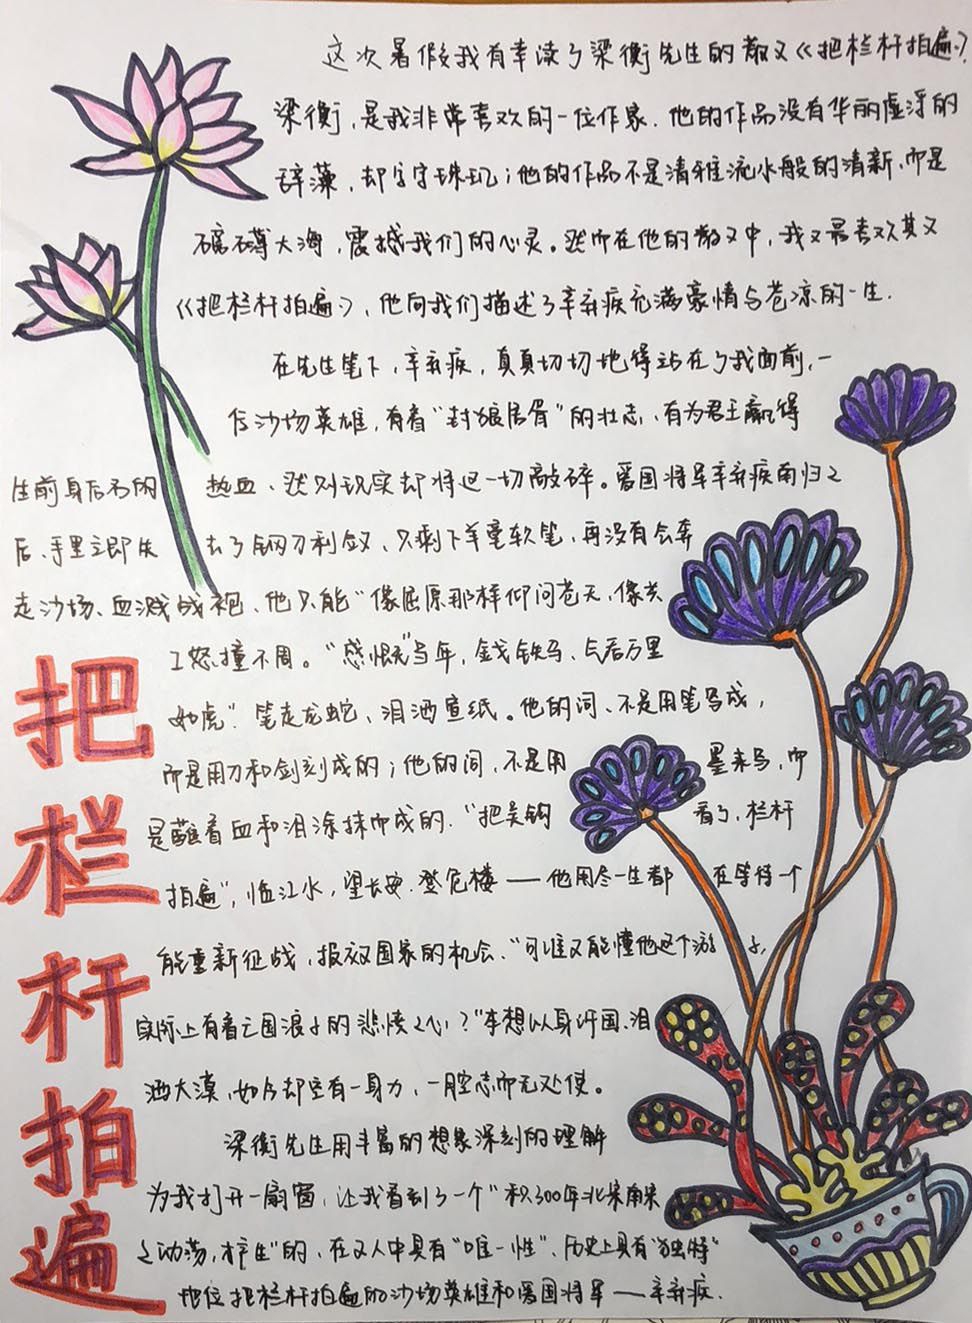 这次暑假我有幸读了梁衡先生的散文《把栏杆拍遍》?
梁衡,是我非常喜欢的一位作家.他的作品没有华丽虚浮的
辞藻,却字字珠玑;他的作品不是清雅流水般的清新,而是
磅礴大海,震撼我们的心灵。然而在他的散文中,我又最喜欢其文
《把栏杆拍遍》,他向我们描述了辛弃疾充满豪情与苍凉的一生.
在先生笔下,辛弃疾,真真切切地得站在了我面前,一
位沙场英雄,有着“封狼居胥”的壮志、有为君王赢得
生前身后名的热血、然则现实却将这一切敲碎。爱国将军辛弃疾南归之
后、手里立即失去了钢刀利剑,只剩下羊毫软笔,再没有会奔
走沙场、血溅战袍、他只能“像屈原那样仰问苍天,像共
工怒撞不周。“感慨”当年,金戈铁马、气吞万里
如虎”笔走龙蛇、泪洒宣纸。他的词、不是用笔写成,
而是用刀和剑刻成的;他的词,不是用墨来写,而
是蘸着血和泪涂抹而成的.“把吴钩看了,栏杆
拍遍”,临江水,望长安.登危楼——他用尽一生都在等待一个
能重新征战,报效国家的机会、“可谁又能懂他这个游子,
实际上有着亡国浪子的悲愤之心?”本想以身许国、泪
洒大漠,如今却空有一身力,一腔志而无处使。
梁衡先生用丰富的想象深刻的理解
为我打开一扇窗,让我看到了一个“积300年北宋南宋
之动荡,杵生”的、在文人中具有“唯一性”、历史上具有“独特”
地位把栏杆拍遍的沙场英雄和爱国将军——辛弃疾.
把栏杆拍遍